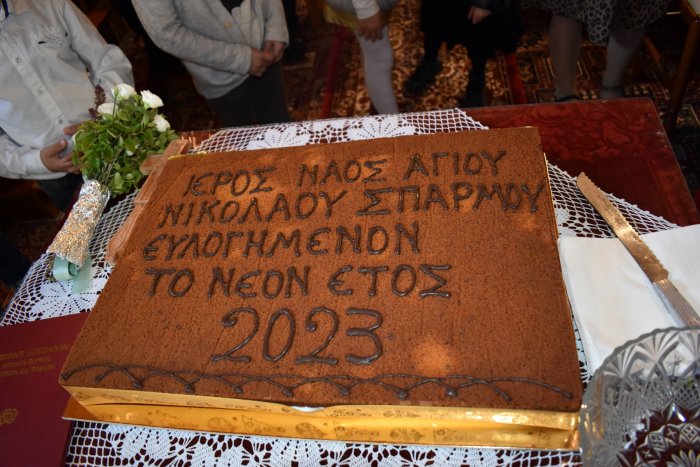 ΙΕΡΟΣ ΝΑΟΣ ΑΓΙΟΥ
ΝΙΚΟΛΑΟΥ ΣΠΑΡΜΟΥ
ΕΥΛΟΓΗΜΕΝΟΝ
ΤΟ ΝΕΟΝ ΕΤΟΣ
2023